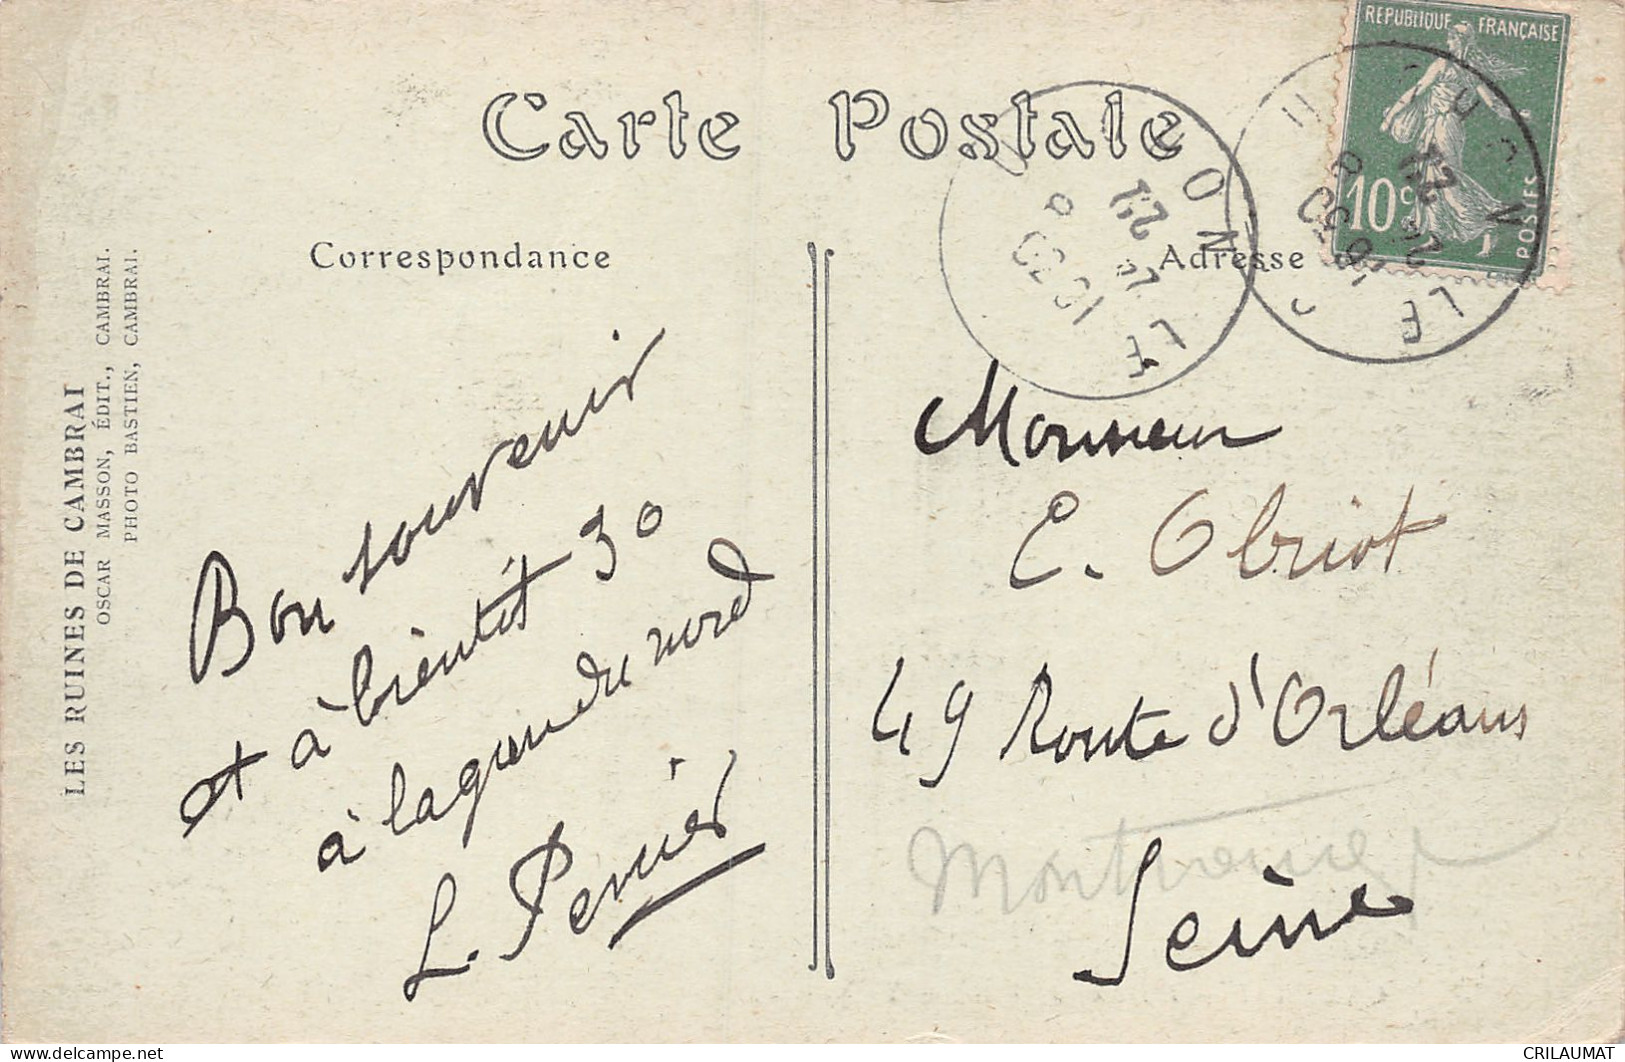 Carte Postale
Correspondance
Adresse
REPUBLIQUE FRANÇAISE
10c
POSTES
LES RUINES DE CAMBRAI
OSCAR MASSON, ÉDIT., CAMBRAI.
PHOTO BASTIEN, CAMBRAI.
Bon souvenir
et à bientôt 30
à la gare du nord
L. Perrier
Monsieur
E. Obriot
49 Route d'Orléans
Montrouge
Seine
CRILAUMAT